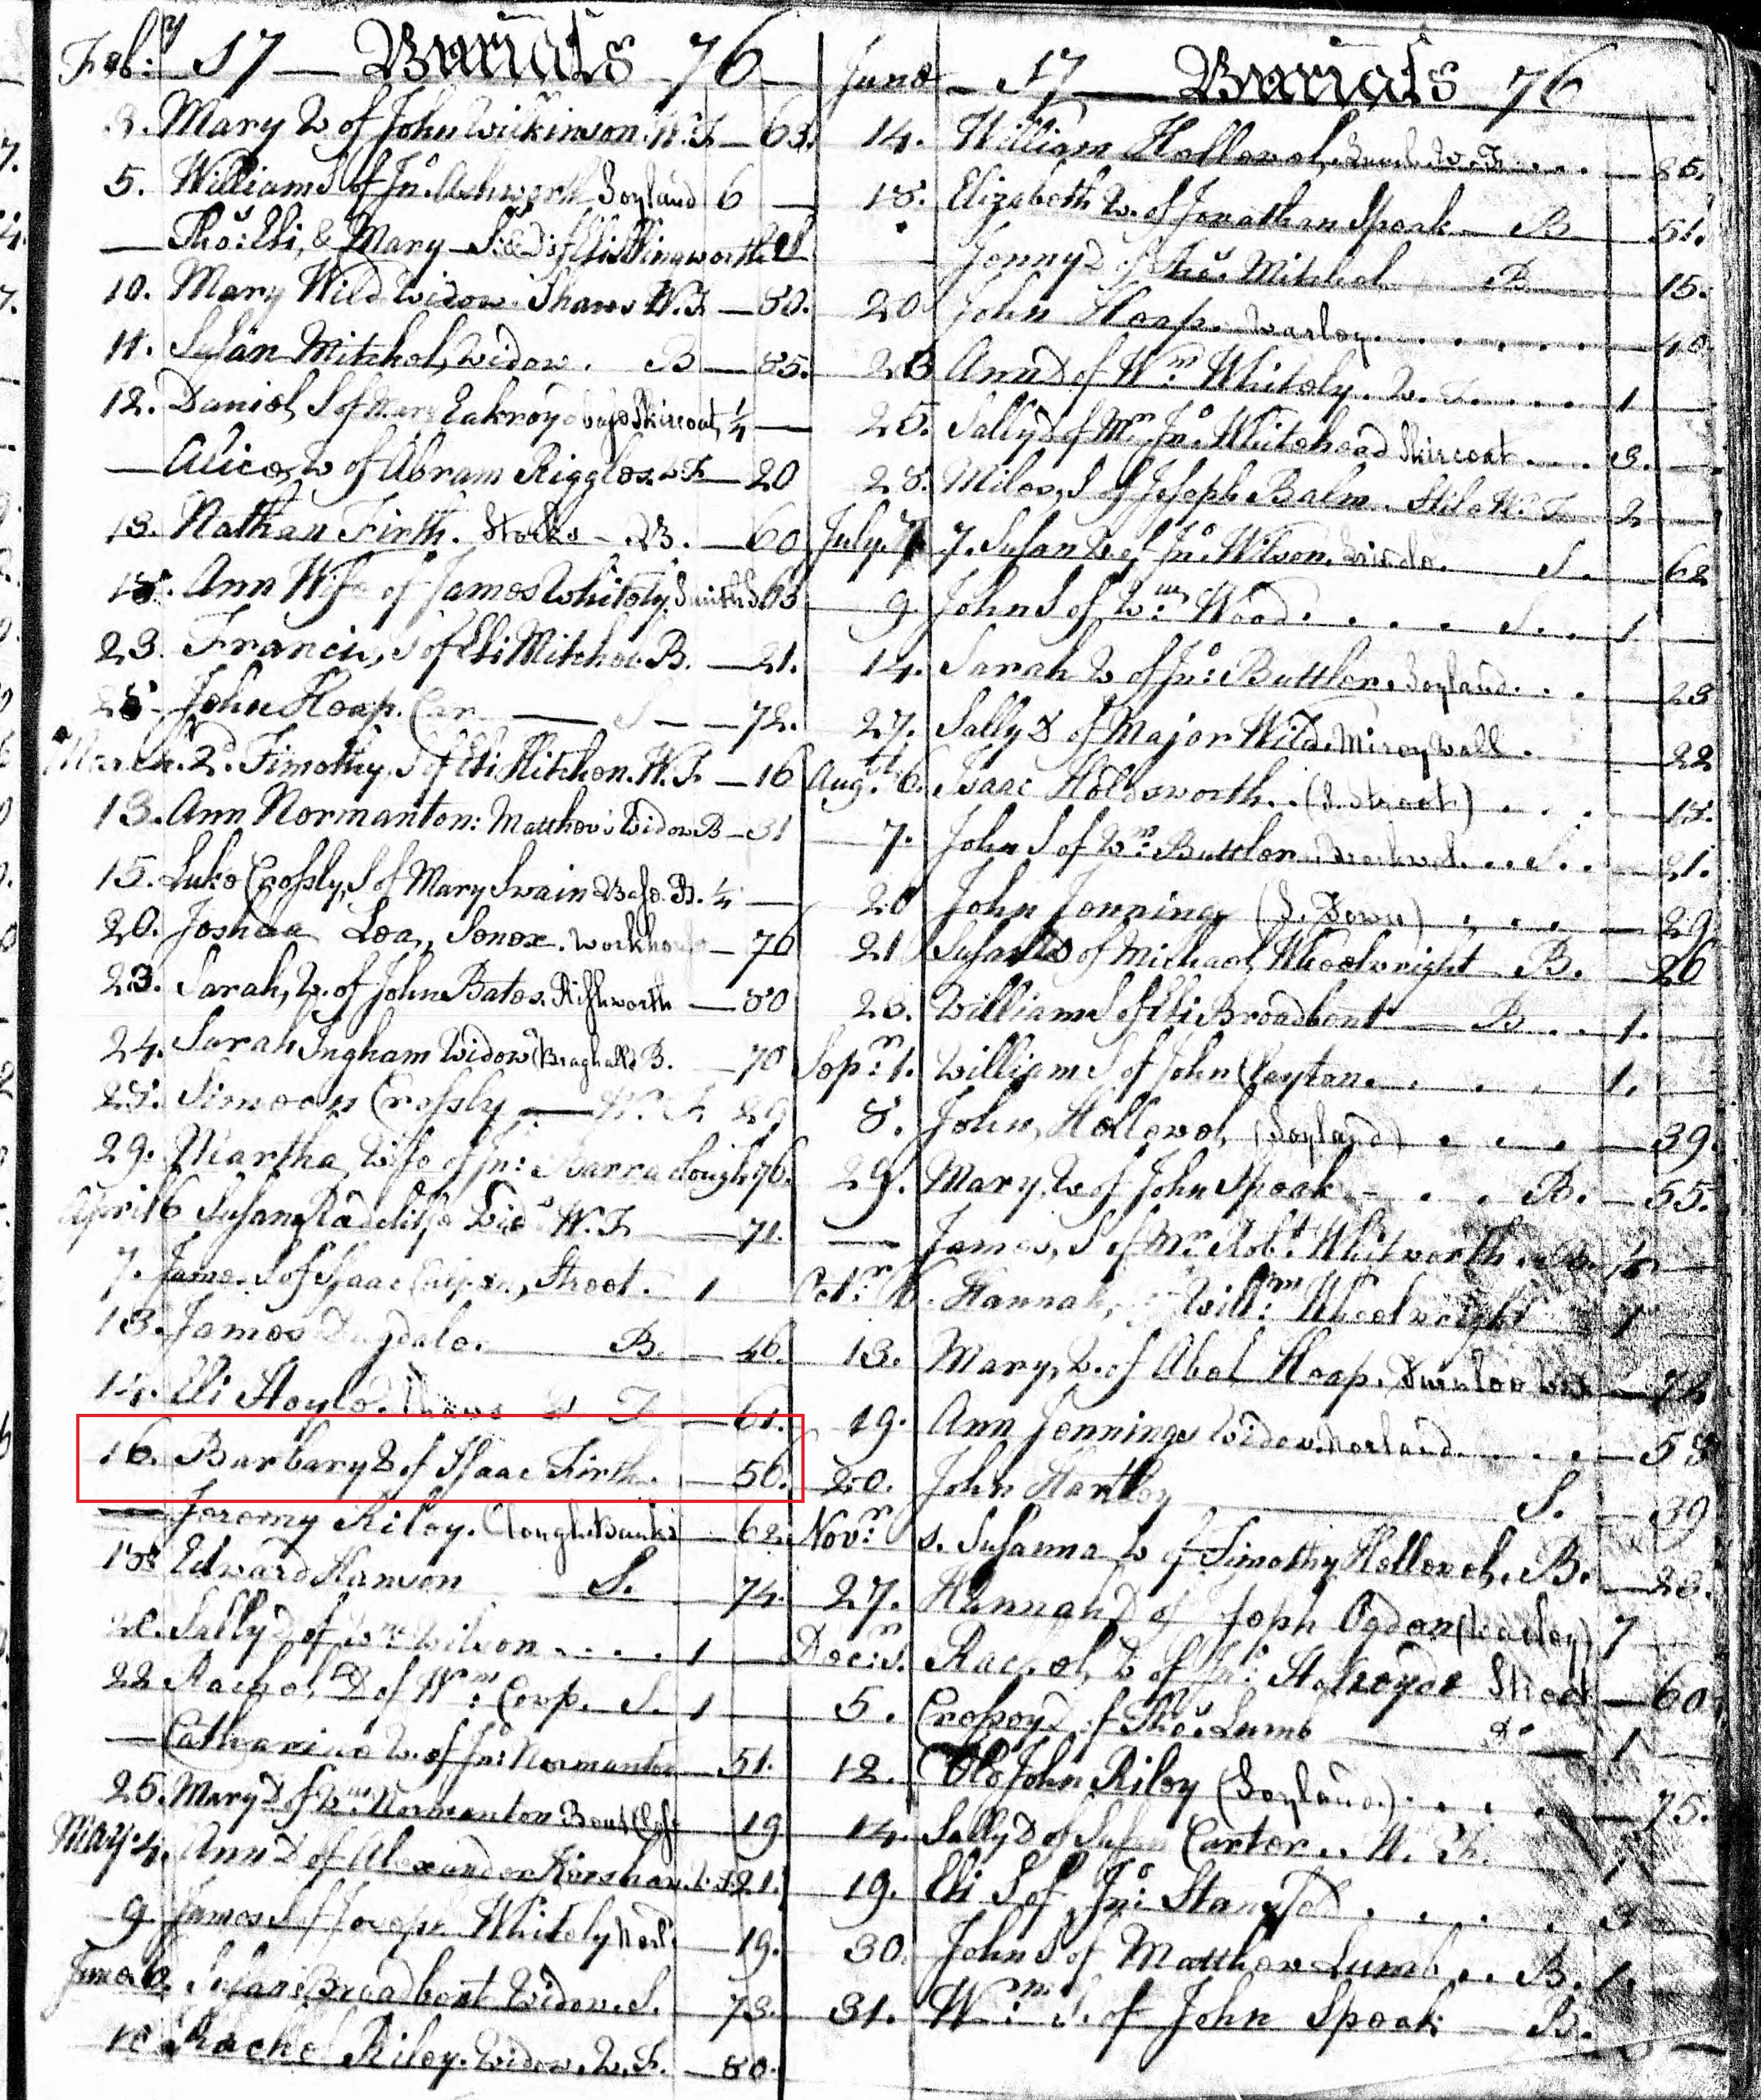 Feb:ry 17 — Burials 76
3. Mary W of John Wilkinson. W.F. — 63.
5. William S of Jno. Ashworth Soyland 6 —
— Thos: Eli, & Mary S: & D: of Eli
10. Mary Wild Widow Shaws W.F. — 80.
11. Susan Mitchel, Widow. B — 85.
12. Daniel, S of Eakroyd base Skircoat, 1/4 —
— Alice, W of Abram Riggles. W F — 20
13. Nathan Firth. Stocks — B. — 60
18. Ann Wife of James Whitely 63
23. Francis, S of Eli Mitchel. B. — 21.
John Heap. S — 72.
March. 2d. Timothy, S of Eli Kitchen. W.F. — 16
13. Ann Normanton: Mathew's Widow B — 31
15. Luke Crossly, S of Mary Swain Base. B. 1/4 —
20. Joshua Lea, Senex. Workhouse — 76
23. Sarah, W. of John Bates. Rishworth — 80
24. Sarah Ingham Widow B. — 70
Simeon Crossly — W. F. 29
29. Martha, Wife of Jno: Barraclough 76.
April 6 Susan Radclife Wido W.F. — 71.
7. James S of Isaac Street. 1
13. James Dugdale. B. — 46.
14. Eli Hoyle. Shaws W F — 61.
16. Barbary W of Isaac Firth. — 56.
— Jeremy Riley. Clough Banks — 62.
18 Edward Hanson — S. 74.
20. Sally D of Wm Wilson . . . . 1
22 Rachel, D of Wm: S. 1
— Catharine W. of Jno: Normanton — 51.
25. Mary D of Wm Normanton 19
May 4. Ann D of Alexander Kershaw. W. F 21.
9 James S of Joseph Whitely — 19.
June 6. Susan Broadbent Widow. S. — 73.
10 Rachel Riley. Widow. W. F. — 80.
June — 17 — Burials 76
14. William Hellewel, W. F. . . — 85.
18. Elizabeth W. of Jonathan Speak — B — 51.
— Jenny D of Thos. Mitchel B — 15.
20 John Heap. Warley . . . . . . — 40.
23 Ann D of Wm Whitely. W. F. . . . . 1 —
25. Sally D of Mr Jno. Whitehead Skircoat . . . . 3. —
28. Miles, S of Joseph Balm. Stile W. F. — 2 —
July 7. Susan W of Jno. Wilson. S. — 62
9 John S of Wm Wood. . . . . S. . 1 —
14. Sarah W of Jno: Buttler. Soyland. . . — 23
27. Sally D of Major Wild. Mirey Wall . — 22
Augst. 6. Isaac Holdsworth. . (S. Street) . . . — 18.
7. John S of Wm: Buttler . . . S. . — 21.
20 John Jennings (S. Town) . . . . — 29
21 Susan D of Michael Wheelwright B. — 26
23. William S of Eli Broadbent — B . . . 1.
Sepr: 1. William S of John Clayton. . . . . . 1. —
8. John Hellewel, (Soyland) . . . . — 39.
29. Mary, W of John Speak — . . . B. — 55.
— James, S of Mr Robt. Whitworth
Octr: 6. Hannah, Willm: Wheelwright 1
13. Mary, W. of Abel Heap.
19. Ann Jennings Widow. Norland . . . . — 58
20. John Hartley — S. — 39
Novr: 5. Susanna W of Timothy Hellewel. B. — 23.
27. Hannah D of Joseph Ogden (Warley) 7
Decr: Rachel, W of Jno: Street — 60
5. D of Thos. Lumb — Do 1 —
12. Old John Riley (Soyland) . . . . — 75.
14. Sally D of Susan Carter . . W. F. 1
19. Eli S of Jno: . . . . . 3
30. John S of Matthew Lumb . . B. 1.
31. Wm: S. of John Speak — B.